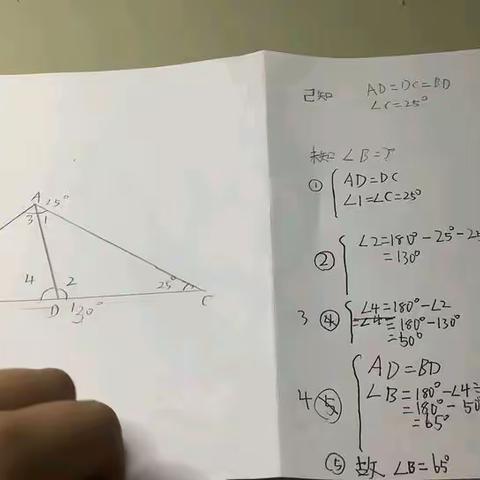 A 25°
3 1
4 2
25°
D 130° C
已知 AD=DC=BD
∠C=25°
未知 ∠B=?
① AD=DC
∠1=∠C=25°
② ∠2=180°-25°-25
=130°
3 ④ ∠4=180°-∠2
=180°-130°
=50°
4 ⑤ AD=BD
∠B=180°-∠4
=180°-50
=65°
⑤ 故 ∠B=65°